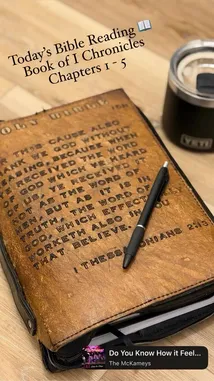 Today's Bible Reading
Book of I Chronicles
Chapters 1 - 5
THIS CAUSE ALSO
WITHOUT
BECAUSE
RECEIVED THE WORD
OF GOD WHICH YE HEARD
OF
RECEIVED IT
AS THE WORD OF
BUT AS IT IS IN
TRUTH, THE WORD OF
WHICH EFFECTUALLY
WORKETH ALSO IN YOU
THAT BELIEVE.
I THESSALONIANS 2:13
YETI
Do You Know How it Feel...
The McKameys